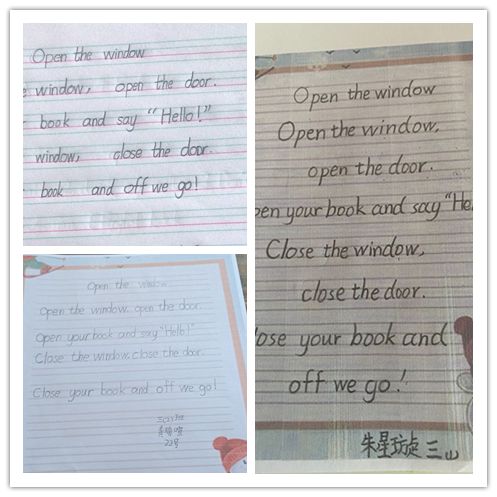 Open the window
e window, open the door.
book and say "Hello!"
window, close the door.
book and off we go!
Open the window
Open the window, open the door.
Open your book and say "Hello!"
Close the window, close the door.
Close your book and off we go!
三(2)班
22号
Open the window
Open the window,
open the door.
pen your book and say "He
Close the window,
close the door.
lose your book and
off we go!
朱星 三